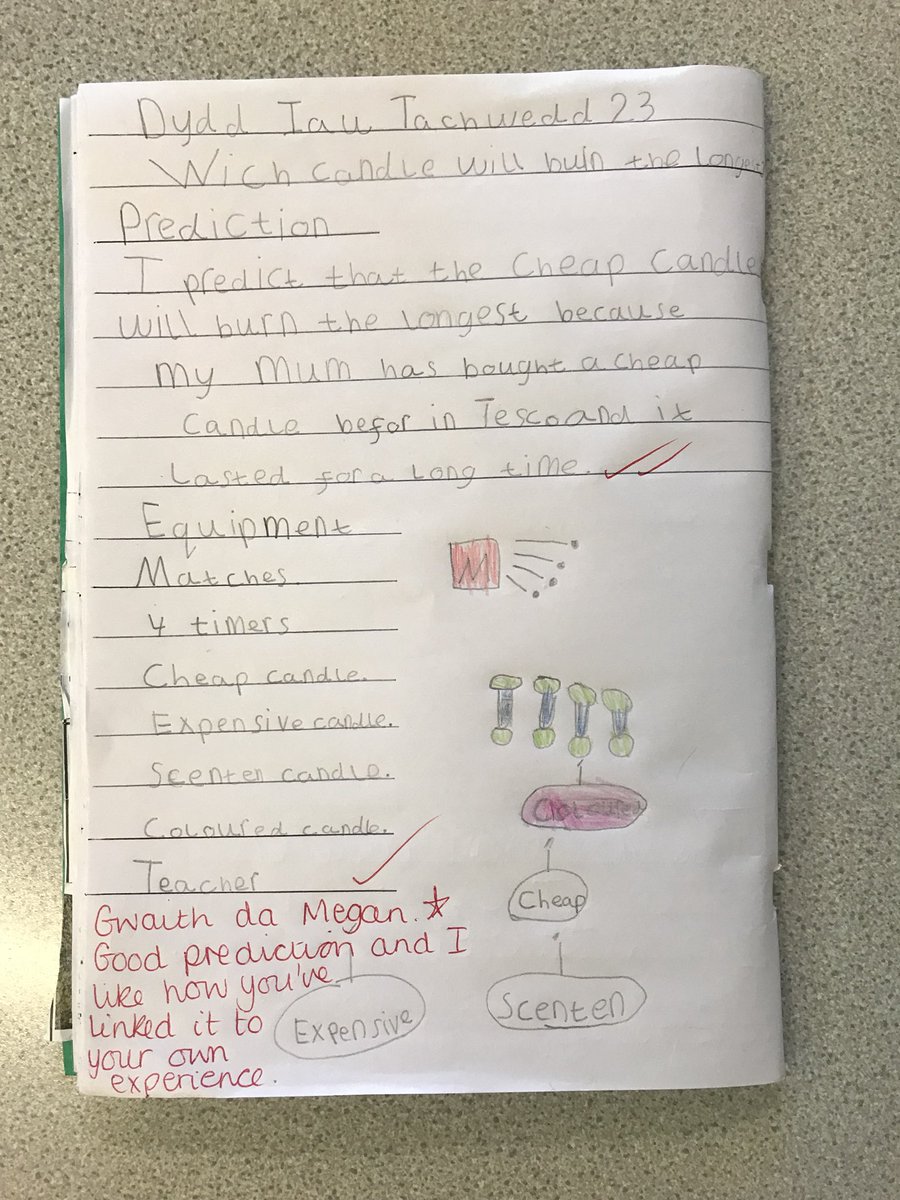 Dydd Iau Tachwedd 23
Wich candle will buln the longest
Prediction
I predict that the cheap candle
will burn the longest because
my mum has bought a cheap
candle befor in Tesco and it
lasted for a long time.
Equipment
Matches.
M
4 timers
Cheap candle.
Expensive candle.
Scenten candle.
Coloured
Coloured candle.
Teacher
Cheap
Gwaith da Megan.
Good prediction and I
like how you've
linked it to
your own
experience.
Scenten
Expensive